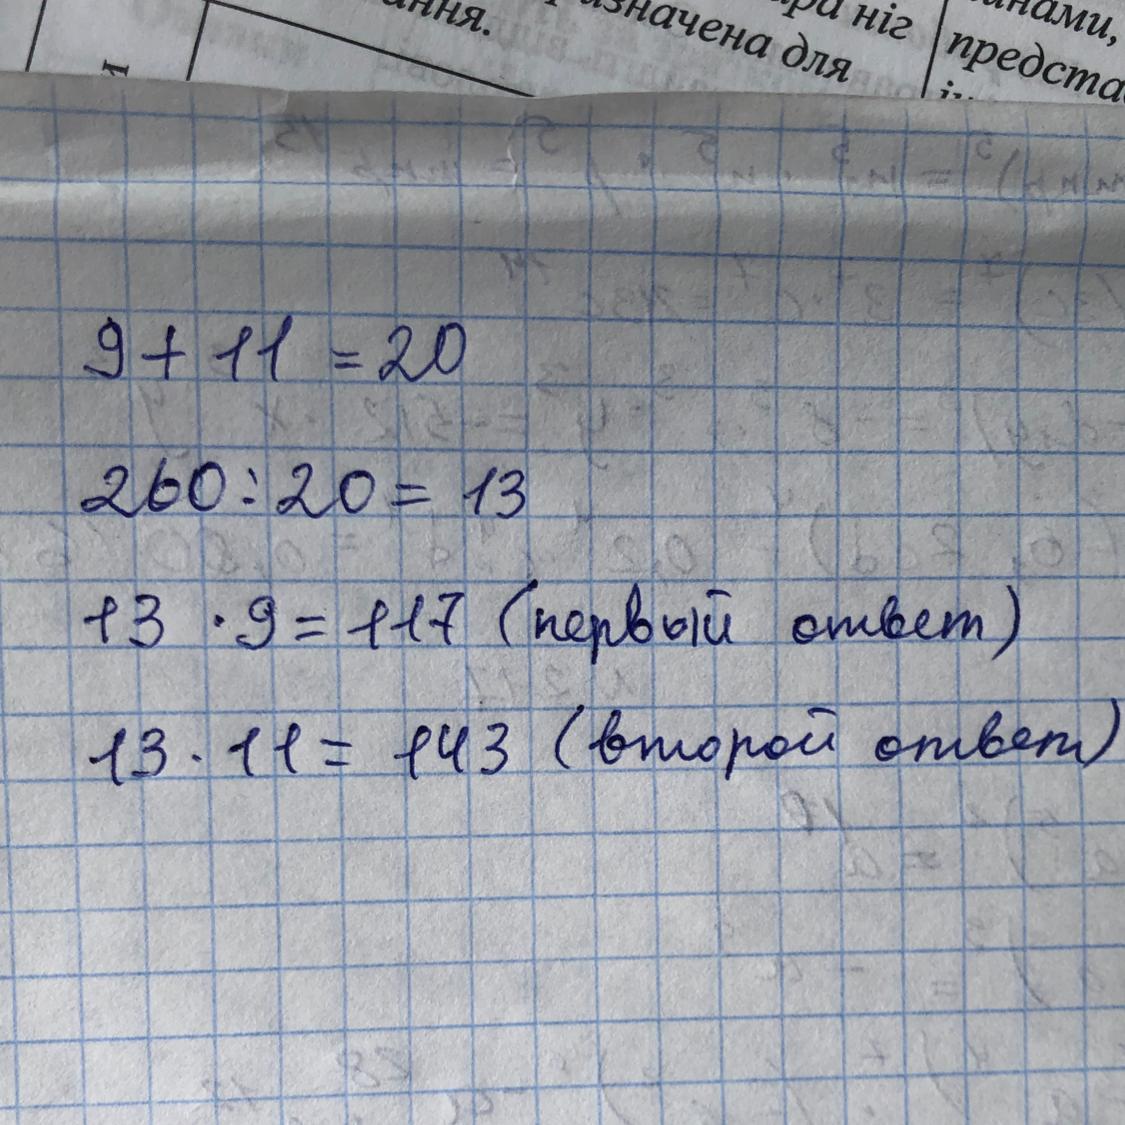 ання.
значена для
ніг
предста
9 + 11 = 20
260 : 20 = 13
13 · 9 = 117 (первый ответ)
13 · 11 = 143 (второй ответ)